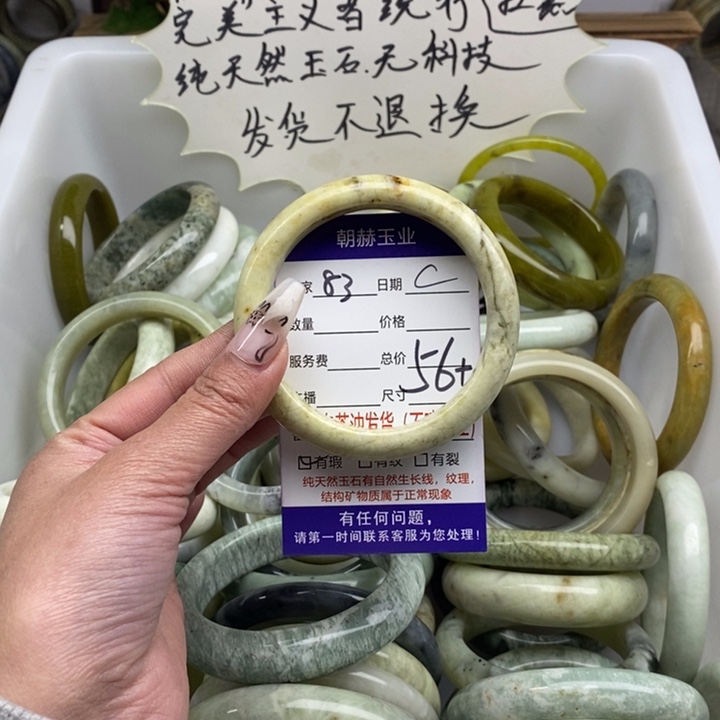 完美主义者绕行
纯天然玉石.无科技
发货不退换
朝赫玉业
家 83 日期 C
数量 价格
服务费 总价
播 尺寸 56+
油发货
有瑕 有纹 有裂
纯天然玉石有自然生长线，纹理，
结构矿物质属于正常现象
有任何问题，
请第一时间联系客服为您处理！